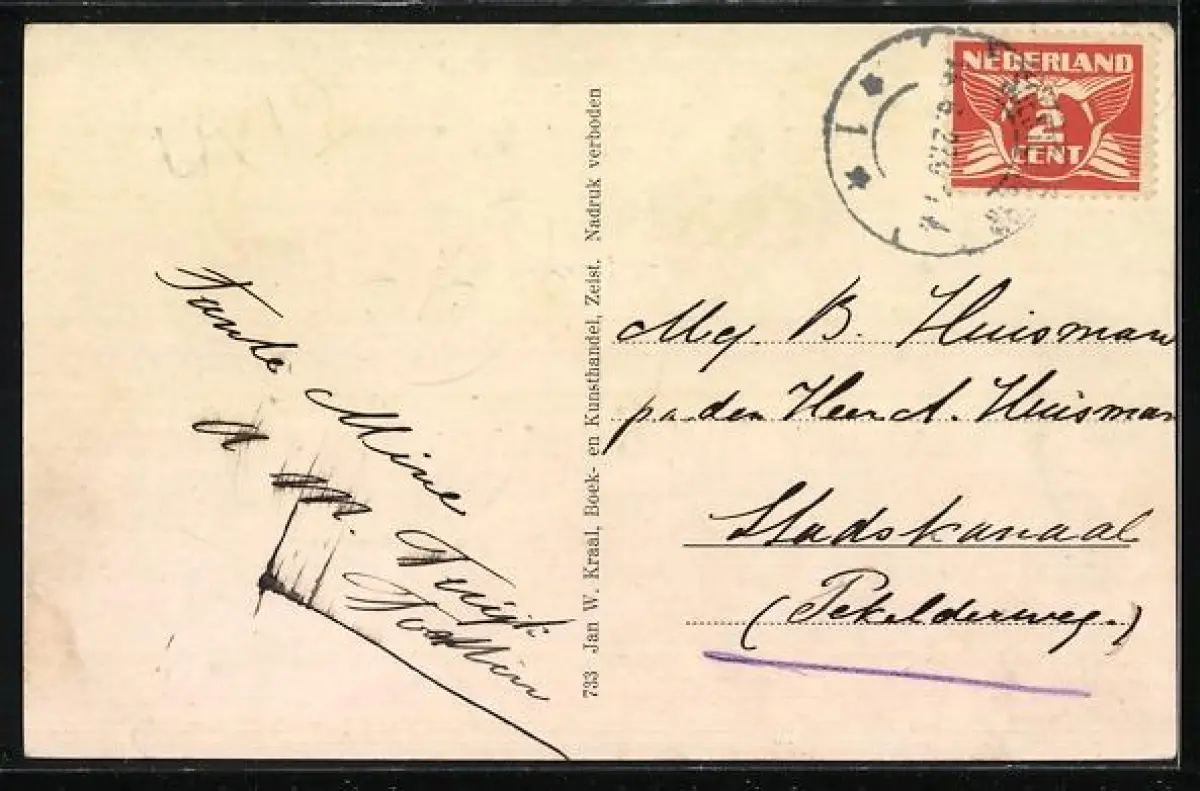 NEDERLAND
2
CENT
1
Mej. B. Huisman
p.a. den Heer A. Huisman
Stadskanaal
(Pekelderweg.)
733 Jan W. Kraal, Boek- en Kunsthandel, Zeist. Nadruk verboden
Tante Mine
A M.